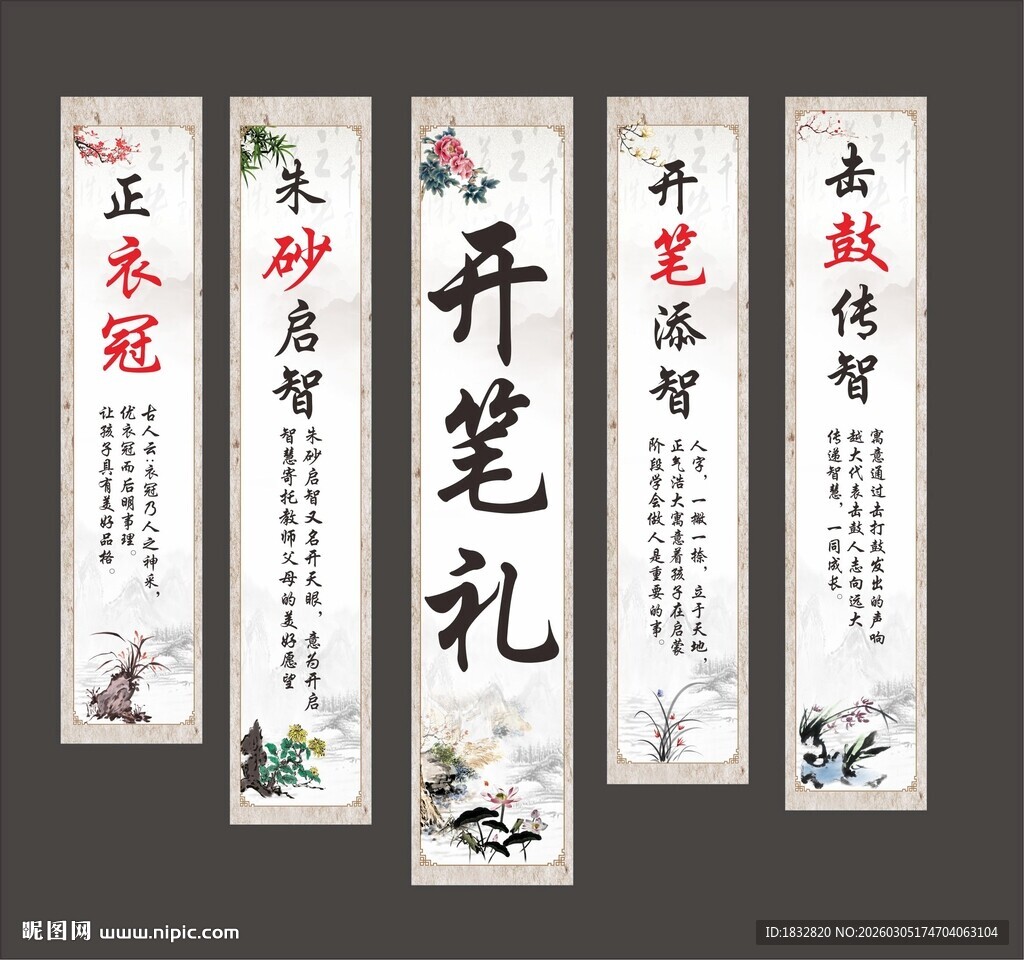 正衣冠
古人云:衣冠乃人之神采,
优衣冠而后明事理。
让孩子具有美好品格。
朱砂启智
朱砂启智又名开天眼,意为开启
智慧寄托教师父母的美好愿望
开笔礼
开笔添智
人字,一撇一捺,立于天地,
正气浩大寓意着孩子在启蒙
阶段学会做人是重要的事。
击鼓传智
寓意通过击打鼓发出的声响
越大代表击鼓人志向远大
传递智慧,一同成长。
昵图网 www.nipic.com
ID:1832820 NO:20260305174704063104